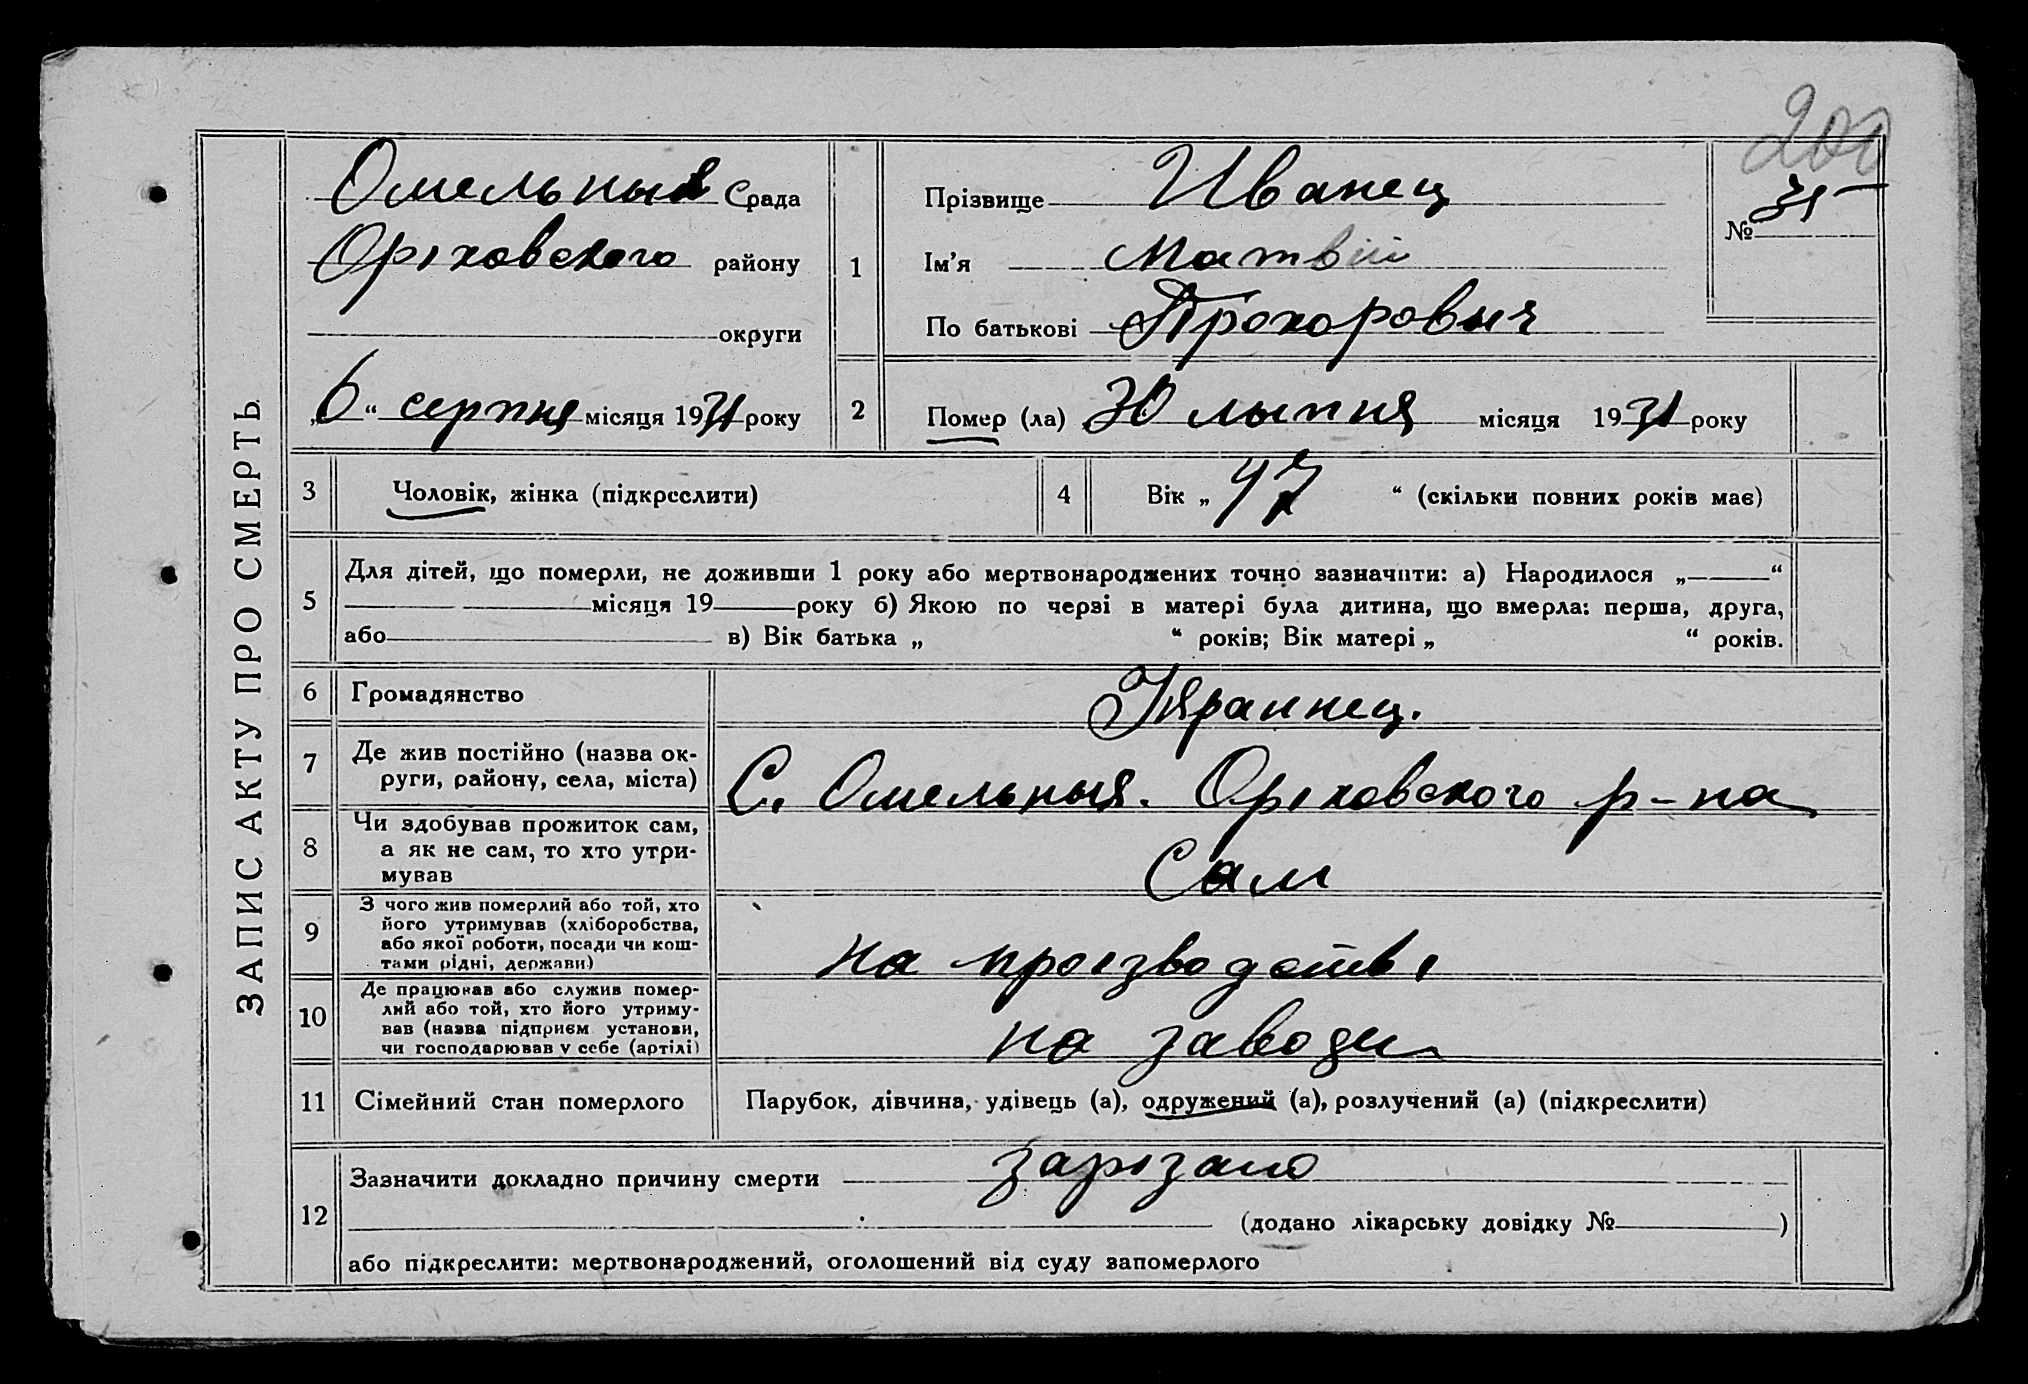 200
ЗАПИС АКТУ ПРО СМЕРТЬ
Омельныя Срада
Оріховского району
округи
„6“ серпня місяця 1931 року
1
Прізвище Иванец
Ім’я Матвій
По батькові Прохоровыч
№ 35
2
Помер (ла) 30 лыпня місяця 1931 року
3 Чоловік, жінка (підкреслити)
4 Вік „47“ (скільки повних років має)
5
Для дітей, що померли, не доживши 1 року або мертвонароджених точно зазначити: а) Народилося „ “
місяця 19 року б) Якою по черзі в матері була дитина, що вмерла: перша, друга,
або в) Вік батька „ “ років; Вік матері „ “ років.
6 Громадянство Украинец.
7 Де жив постійно (назва ок-
руги, району, села, міста)
С. Омельныя. Оріховского р-на
8 Чи здобував прожиток сам,
а як не сам, то хто утри-
мував
Сам
9 З чого жив померлий або той, хто
його утримував (хліборобства,
або якої роботи, посади чи кош-
тами рідні, держави)
на проізводстві
10 Де працював або служив помер-
лий або той, хто його утриму-
вав (назва підприєм установи,
чи господарював у себе (артілі)
на заводи
11 Сімейний стан померлого Парубок, дівчина, удівець (а), одружений (а), розлучений (а) (підкреслити)
12 Зазначити докладно причину смерти зарізано
(додано лікарську довідку № )
або підкреслити: мертвонароджений, оголошений від суду запомерлого